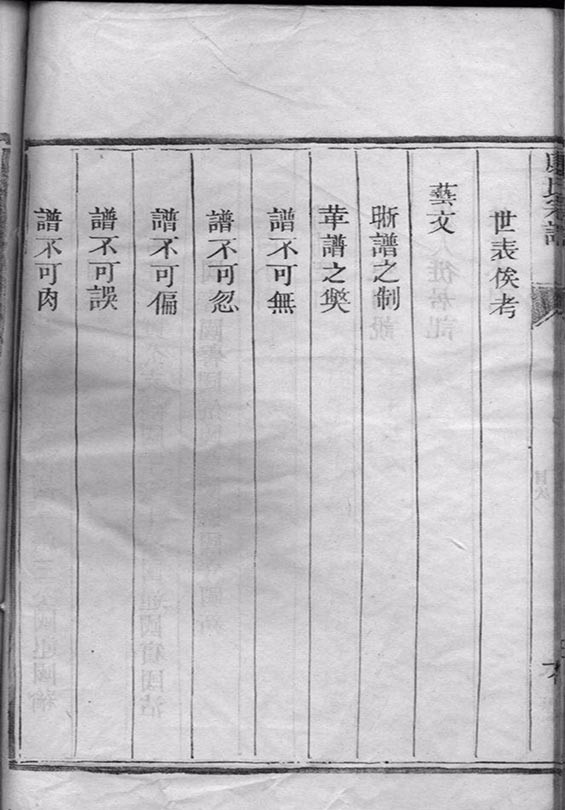 世表俟考
藝文
晰譜之制
革譜之獘
譜不可無
譜不可忽
譜不可偏
譜不可誤
譜不可肉
氏宗譜
目次